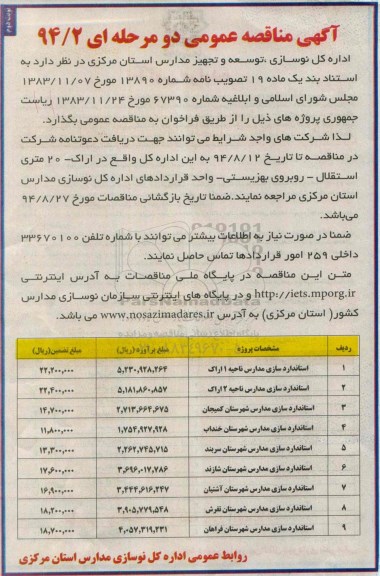 نوبت دوم
آگهی مناقصه عمومی دو مرحله ای ۹۴/۲
اداره کل نوسازی ،توسعه و تجهیز مدارس استان مرکزی در نظر دارد به
استناد بند یک ماده ۱۹ تصویب نامه شماره ۱۳۸۹۰ مورخ ۱۳۸۳/۱۱/۰۷
مجلس شورای اسلامی و ابلاغیه شماره ۶۷۳۹۰ مورخ ۱۳۸۳/۱۱/۲۴ ریاست
جمهوری پروژه های ذیل را از طریق فراخوان به مناقصه عمومی بگذارد.
لـذا شرکت های واجد شرایط می توانند جهت دریافت دعوتنامه شرکت
در مناقصـه تا تاریخ ۹۴/۸/۱۲ به این اداره کل واقع در اراک- ۲۰ متری
استقلال - روبروی بهزیستی- واحد قراردادهای اداره کل نوسازی مدارس
استان مرکزی مراجعه نمایند.ضمنا تاریخ بازگشائی مناقصات مورخ ۹۴/۸/۲۷
می‌باشد.
ضمنا در صورت نیاز به اطلاعات بیشتر می توانند با شماره تلفن ۳۳۶۷۰۱۰۰
داخلی ۲۵۹ امور قراردادها تماس حاصل نمایند.
متن این مناقصه در پایگاه ملی مناقصات به آدرس اینترنتی
http://iets.mporg.ir و در پایگاه های اینترنتی سازمان نوسازی مدارس
کشور( استان مرکزی) به آدرس www.nosazimadares.ir می باشد.
ردیف مشخصات پروژه مبلغ برآورد (ریال) مبلغ تضمین(ریال)
۱ استاندارد سازی مدارس ناحیه ۱ اراک ۵,۲۳۰,۹۲۸,۲۶۴ ۲۲,۲۰۰,۰۰۰
۲ استاندارد سازی مدارس ناحیه ۲ اراک ۵,۱۸۱,۸۶۰,۸۵۷ ۲۲,۴۰۰,۰۰۰
۳ استاندارد سازی مدارس شهرستان کمیجان ۲,۷۱۳,۶۶۴,۶۷۵ ۱۴,۷۰۰,۰۰۰
۴ استاندارد سازی مدارس شهرستان خنداب ۱,۷۵۴,۹۲۷,۹۲۸ ۱۱,۸۰۰,۰۰۰
۵ استاندارد سازی مدارس شهرستان سربند ۲,۲۶۲,۷۴۵,۷۱۵ ۱۳,۳۰۰,۰۰۰
۶ استاندارد سازی مدارس شهرستان شازند ۳,۶۹۶,۰۱۷,۷۸۶ ۱۷,۶۰۰,۰۰۰
۷ استاندارد سازی مدارس شهرستان آشتیان ۳,۴۴۴,۶۱۶,۲۴۷ ۱۶,۹۰۰,۰۰۰
۸ استاندارد سازی مدارس شهرستان تفرش ۳,۹۰۵,۷۷۹,۵۴۸ ۱۸,۲۰۰,۰۰۰
۹ استاندارد سازی مدارس شهرستان فراهان ۴,۰۵۷,۳۱۹,۲۳۱ ۱۸,۷۰۰,۰۰۰
روابط عمومی اداره کل نوسازی مدارس استان مرکزی